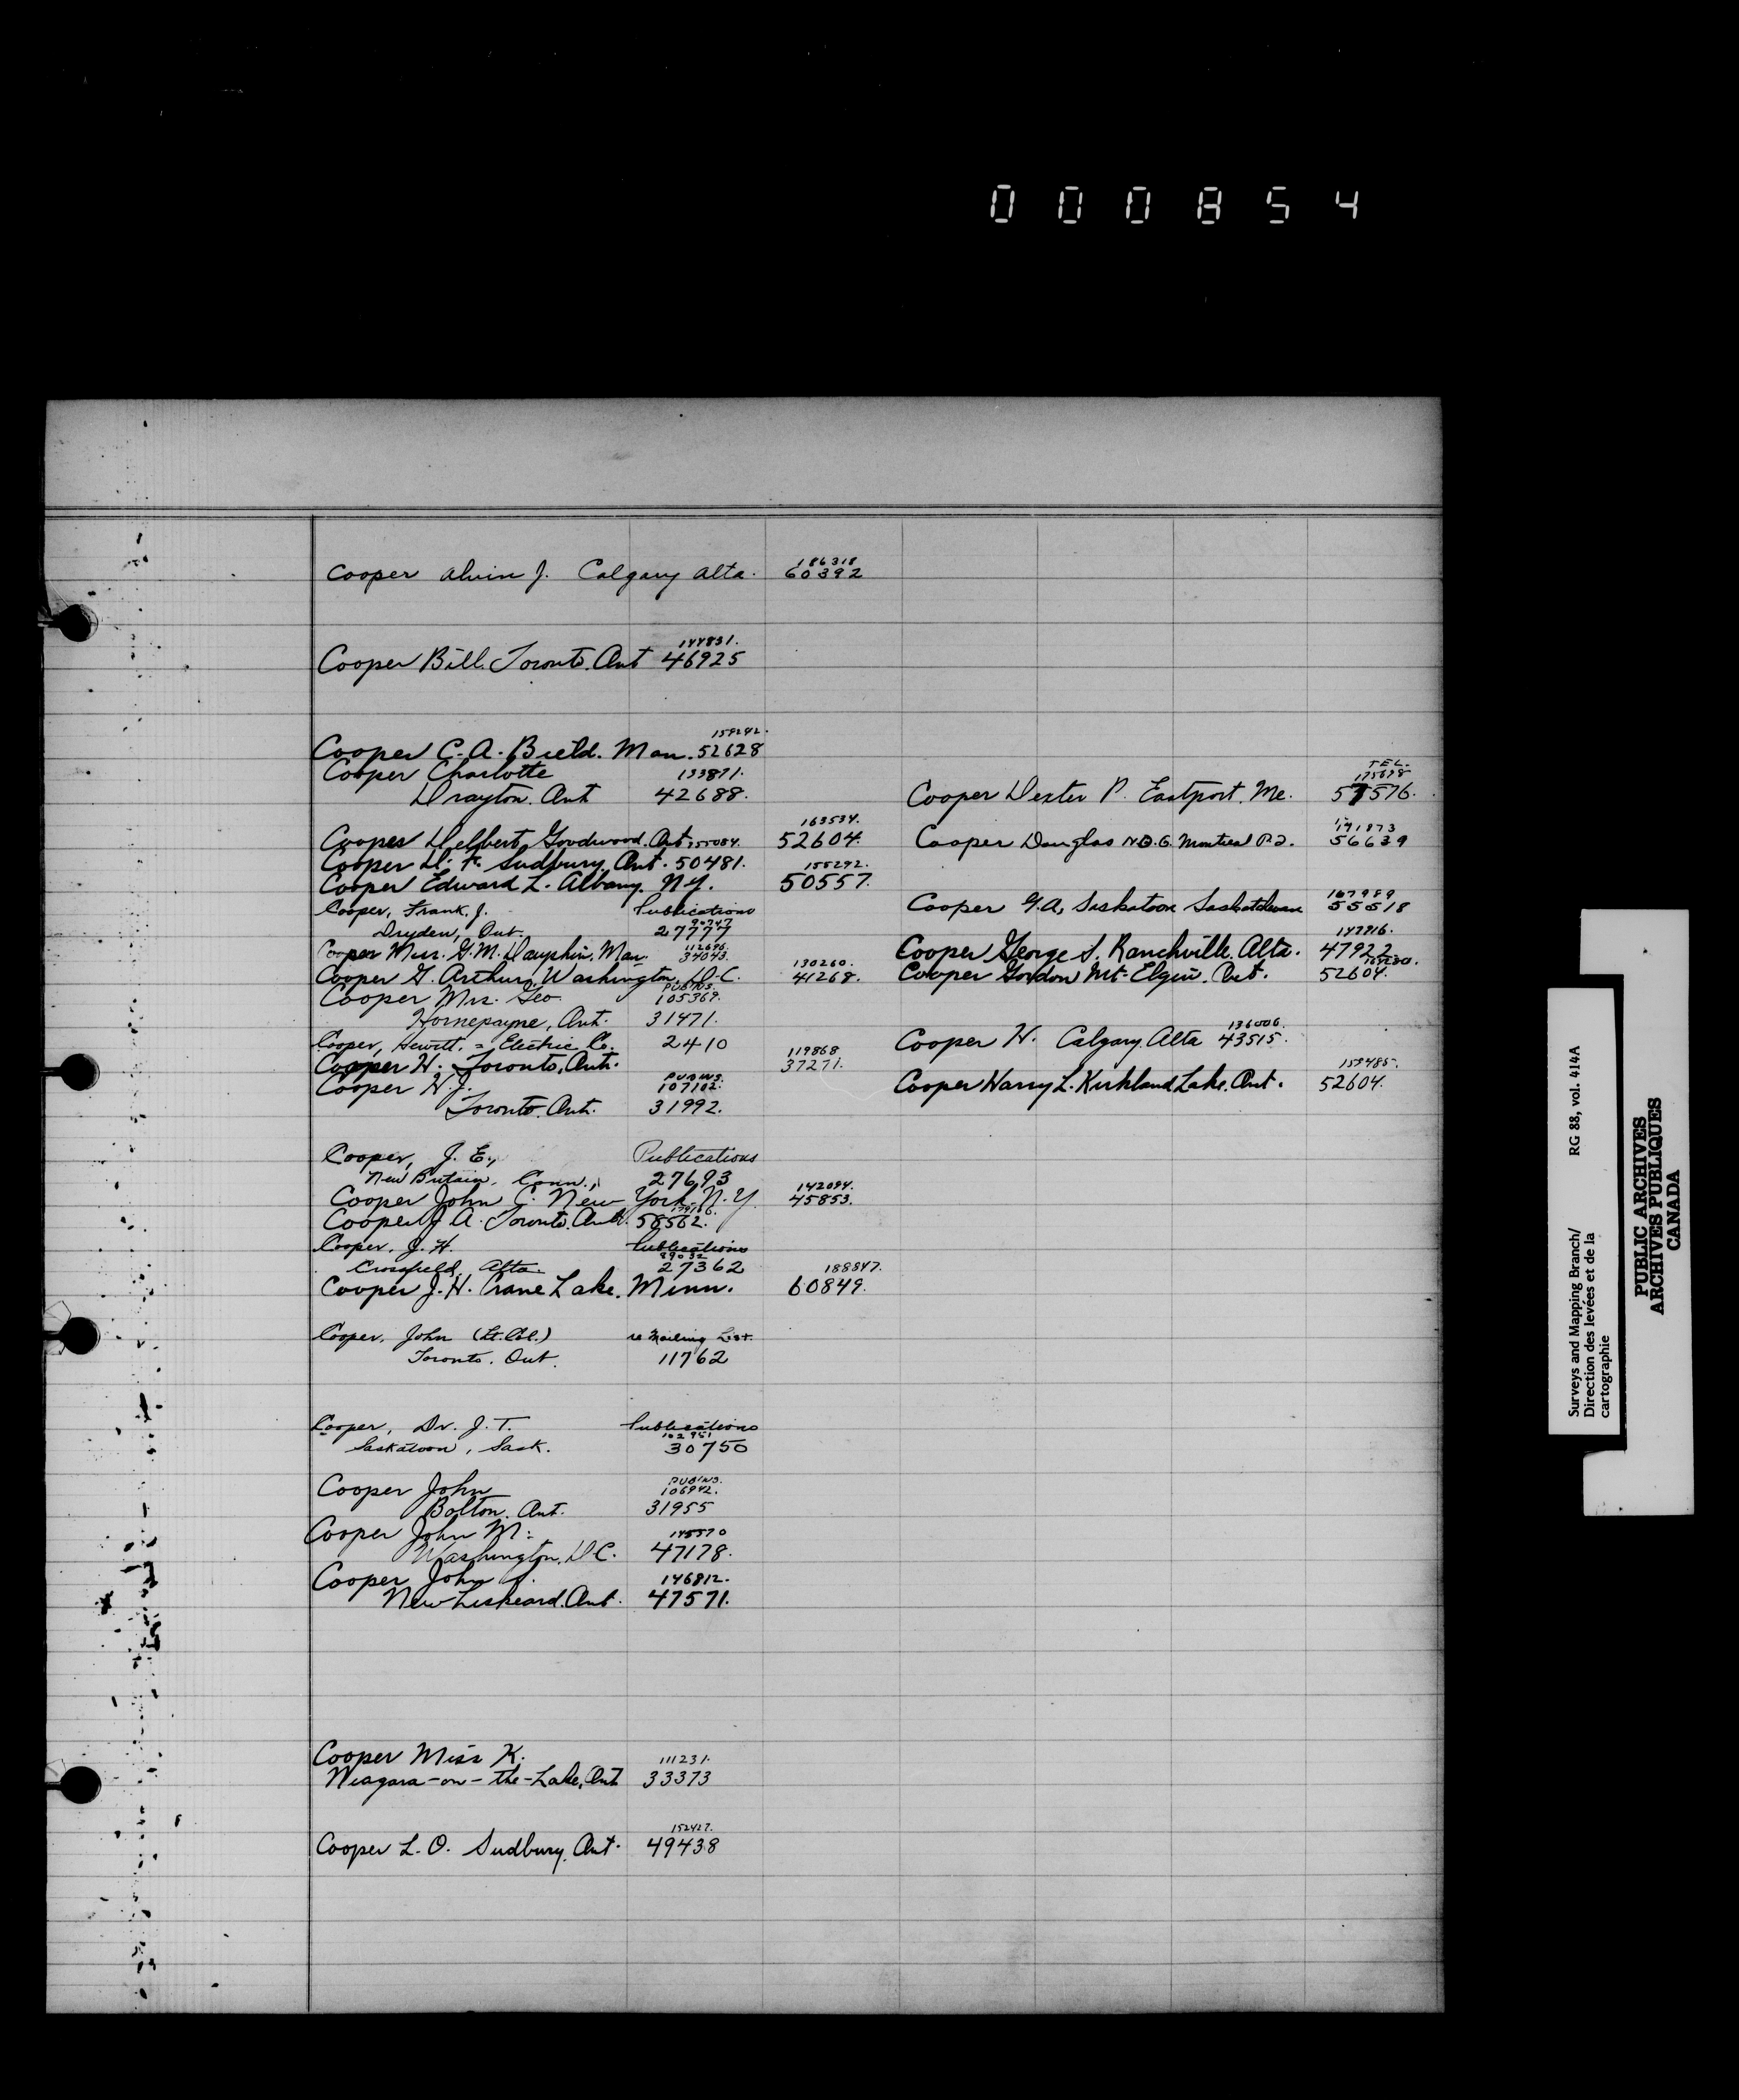 000854
186318
Cooper Alvin J. Calgary Alta. 60392
144831.
Cooper Bill. Toronto. Ont 46925
159242.
Cooper C. A. Bield. Man. 52628
Cooper Charlotte 133871.
Drayton. Ont 42688.
163534.
Cooper Delbert Goodwood. Ont. 155084. 52604.
Cooper D. F. Sudbury. Ont. 50481. 155292.
Cooper Edward L. Albany. N.Y. 50557.
Cooper, Frank, J. Publications
90747
Dryden, Ont. 27777
112696.
Cooper Mrs. G. M. Dauphin, Man. 34043.
130260.
Cooper G. Arthur, Washington, D.C. 41268.
PUB'NS.
Cooper Mrs. Geo. 105369.
Hornepayne, Ont. 31471.
Cooper, Hewitt, = Electric Co. 2410
119868
Cooper H. Toronto, Ont. 37271.
PUB'NS.
Cooper H. J. 107102.
Toronto. Ont. 31992.
Cooper, J. E., Publications
New Britain, Conn., 27693
142094.
Cooper John C. New York. N.Y. 45853.
Cooper J A. Toronto. Ont. 58562.
Cooper, J. H. Publications
89032
Crossfield, Alta. 27362
188847.
Cooper J. H. Crane Lake. Minn. 60849.
Cooper, John (Lt. Col.) re Mailing List
Toronto, Ont. 11762
Cooper, Dr. J. T. Publications
102951
Saskatoon, Sask. 30750
PUB'NS.
Cooper John 106942.
Bolton. Ont. 31955
Cooper John M. 145570
Washington, D.C. 47178.
Cooper John 146812.
New Liskeard. Ont. 47571.
Cooper Miss K. 111231.
Niagara-on-the-Lake, Ont 33373
152427.
Cooper L. O. Sudbury. Ont. 49438
TEL.
175678
Cooper Dexter P. Eastport. Me. 57576.
171873
Cooper Douglas N.D.G. Montreal P.Q. 56639
167989
Cooper G. A, Saskatoon Saskatchewan 55518
147916.
Cooper George S. Ranchville. Alta. 47922
Cooper Gordon Mt. Elgin. Ont. 52604.
136006.
Cooper H. Calgary. Alta 43515.
159485.
Cooper Harry L. Kirkland Lake. Ont. 52604.
Surveys and Mapping Branch/ RG 88, vol. 414A
Direction des levées et de la
cartographie
PUBLIC ARCHIVES
ARCHIVES PUBLIQUES
CANADA